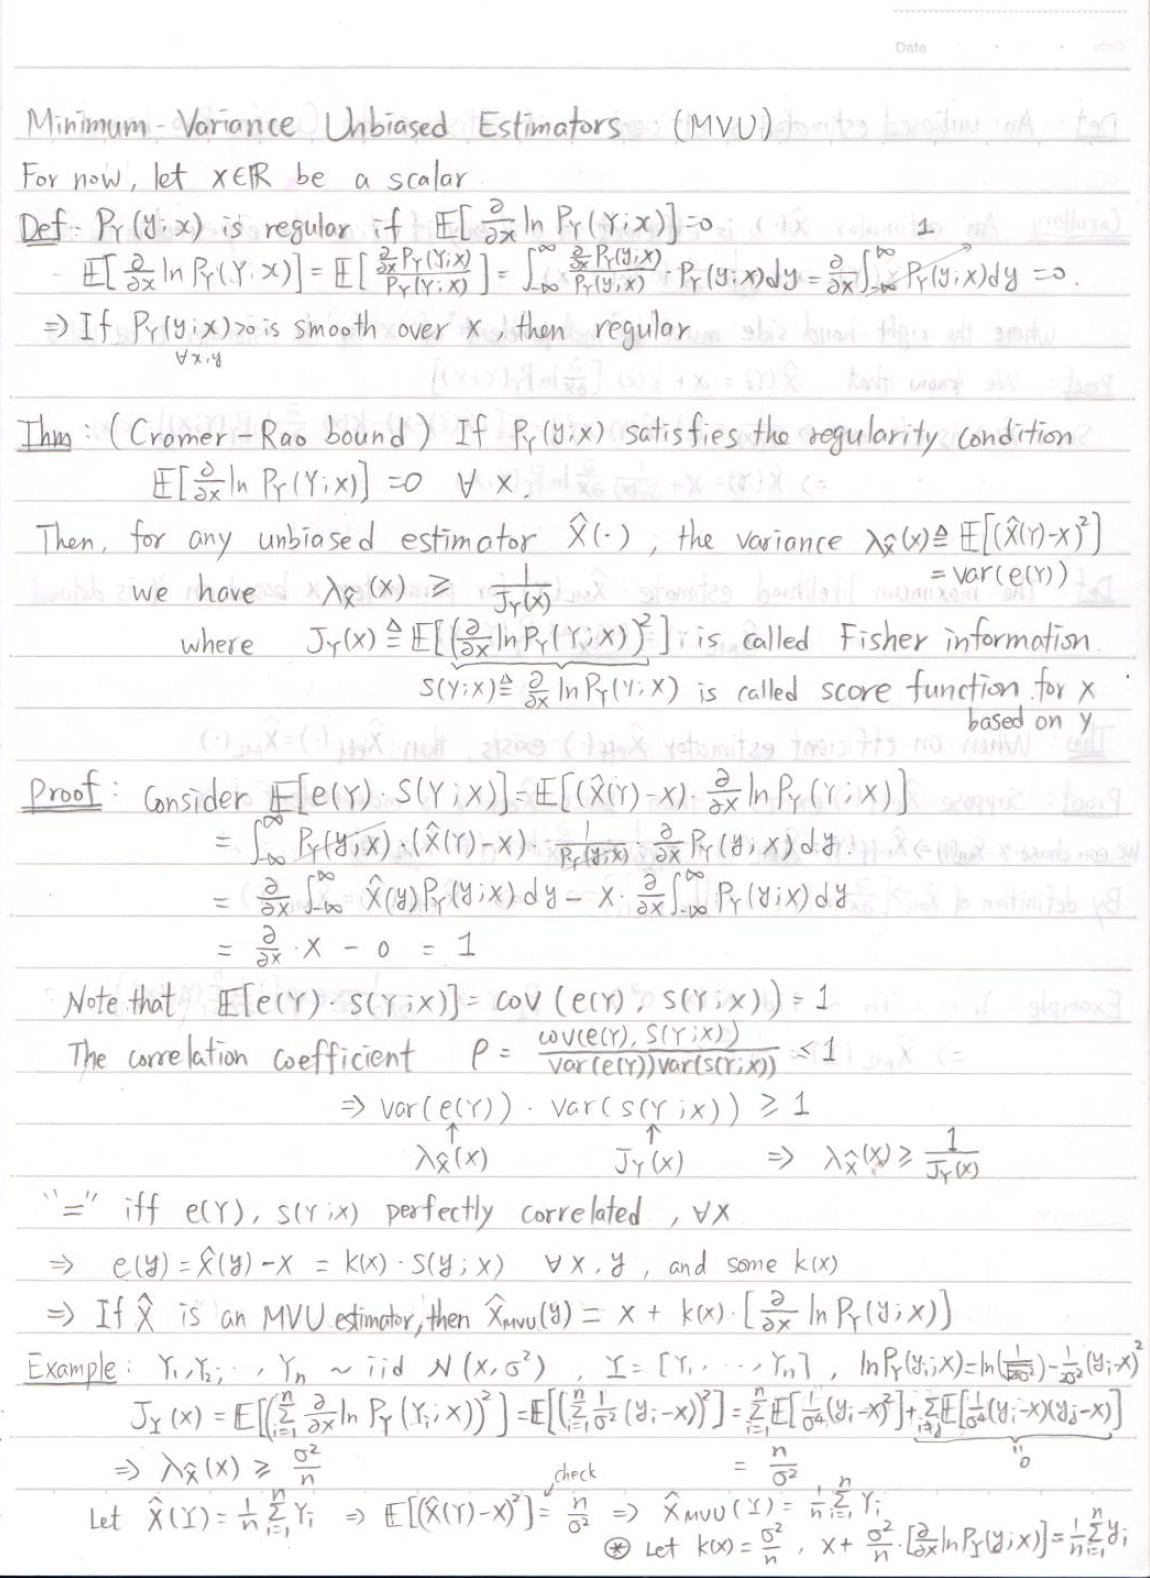 Date
Minimum-Variance Unbiased Estimators (MVU)
For now, let x∈ℝ be a scalar
Def: P_Y(y;x) is regular if 𝔼[∂/∂x ln P_Y(Y;x)]=0
𝔼[∂/∂x ln P_Y(Y;x)] = 𝔼[ (∂/∂x P_Y(Y;x)) / P_Y(Y;x) ] = ∫_{-∞}^{∞} (∂/∂x P_Y(y;x)) / P_Y(y;x) · P_Y(y;x)dy = ∂/∂x ∫_{-∞}^{∞} P_Y(y;x)dy = 0. 1
⇒ If P_Y(y;x)>0 is smooth over x, then regular
∀x,y
Thm: (Cramer-Rao bound) If P_Y(y;x) satisfies the regularity condition
𝔼[∂/∂x ln P_Y(Y;x)] = 0 ∀ x.
Then, for any unbiased estimator X̂(·), the variance λ_X̂(x) ≜ 𝔼[(X̂(Y)-x)²]
= var(e(Y))
we have λ_X̂(x) ≥ 1/J_Y(x)
where J_Y(x) ≜ 𝔼[(∂/∂x ln P_Y(Y;x))²] ; is called Fisher information
S(Y;x) ≜ ∂/∂x ln P_Y(Y;x) is called score function for x
based on y
Proof: Consider 𝔼[e(Y)·S(Y;x)] = 𝔼[(X̂(Y)-x)·∂/∂x ln P_Y(Y;x)]
= ∫_{-∞}^{∞} P_Y(y;x)·(X̂(Y)-x)· 1/P_Y(y;x) · ∂/∂x P_Y(y;x)dy.
= ∂/∂x ∫_{-∞}^{∞} X̂(y)P_Y(y;x)dy - x·∂/∂x ∫_{-∞}^{∞} P_Y(y;x)dy
= ∂/∂x · x - 0 = 1
Note that 𝔼[e(Y)·S(Y;x)] = cov(e(Y), S(Y;x)) = 1
The correlation coefficient ρ = cov(e(Y), S(Y;x)) / var(e(Y))var(S(Y;x)) ≤ 1
⇒ var(e(Y)) · var(S(Y;x)) ≥ 1
↑ ↑
λ_X̂(x) J_Y(x) ⇒ λ_X̂(x) ≥ 1/J_Y(x)
"=" iff e(Y), S(Y;x) perfectly correlated, ∀x
⇒ e(y) = X̂(y)-x = k(x)·S(y;x) ∀x,y, and some k(x)
⇒ If X̂ is an MVU estimator, then X̂_MVU(y) = x + k(x)·[∂/∂x ln P_Y(y;x)]
Example: Y₁,Y₂,···,Yₙ ~ iid N(x,σ²), Y=[Y₁,···,Yₙ], ln P_Y(yᵢ;x) = ln(1/√(2πσ²)) - 1/2σ² (yᵢ-x)²
J_Y(x) = 𝔼[(Σ_{i=1}^{n} ∂/∂x ln P_Y(Yᵢ;x))²] = 𝔼[(Σ_{i=1}^{n} 1/σ² (yᵢ-x))²] = Σ_{i=1}^{n} 𝔼[1/σ⁴ (yᵢ-x)²] + Σ_{i≠j} 𝔼[1/σ⁴ (yᵢ-x)(yⱼ-x)]
⇒ λ_X̂(x) ≥ σ²/n = n/σ² = 0
check
Let X̂(Y) = 1/n Σ_{i=1}^{n} Yᵢ ⇒ 𝔼[(X̂(Y)-x)²] = n/σ² ⇒ X̂_MVU(Y) = 1/n Σ_{i=1}^{n} Yᵢ
⊛ Let k(x) = σ²/n, x + σ²/n ·[∂/∂x ln P_Y(y;x)] = 1/n Σ_{i=1}^{n} yᵢ